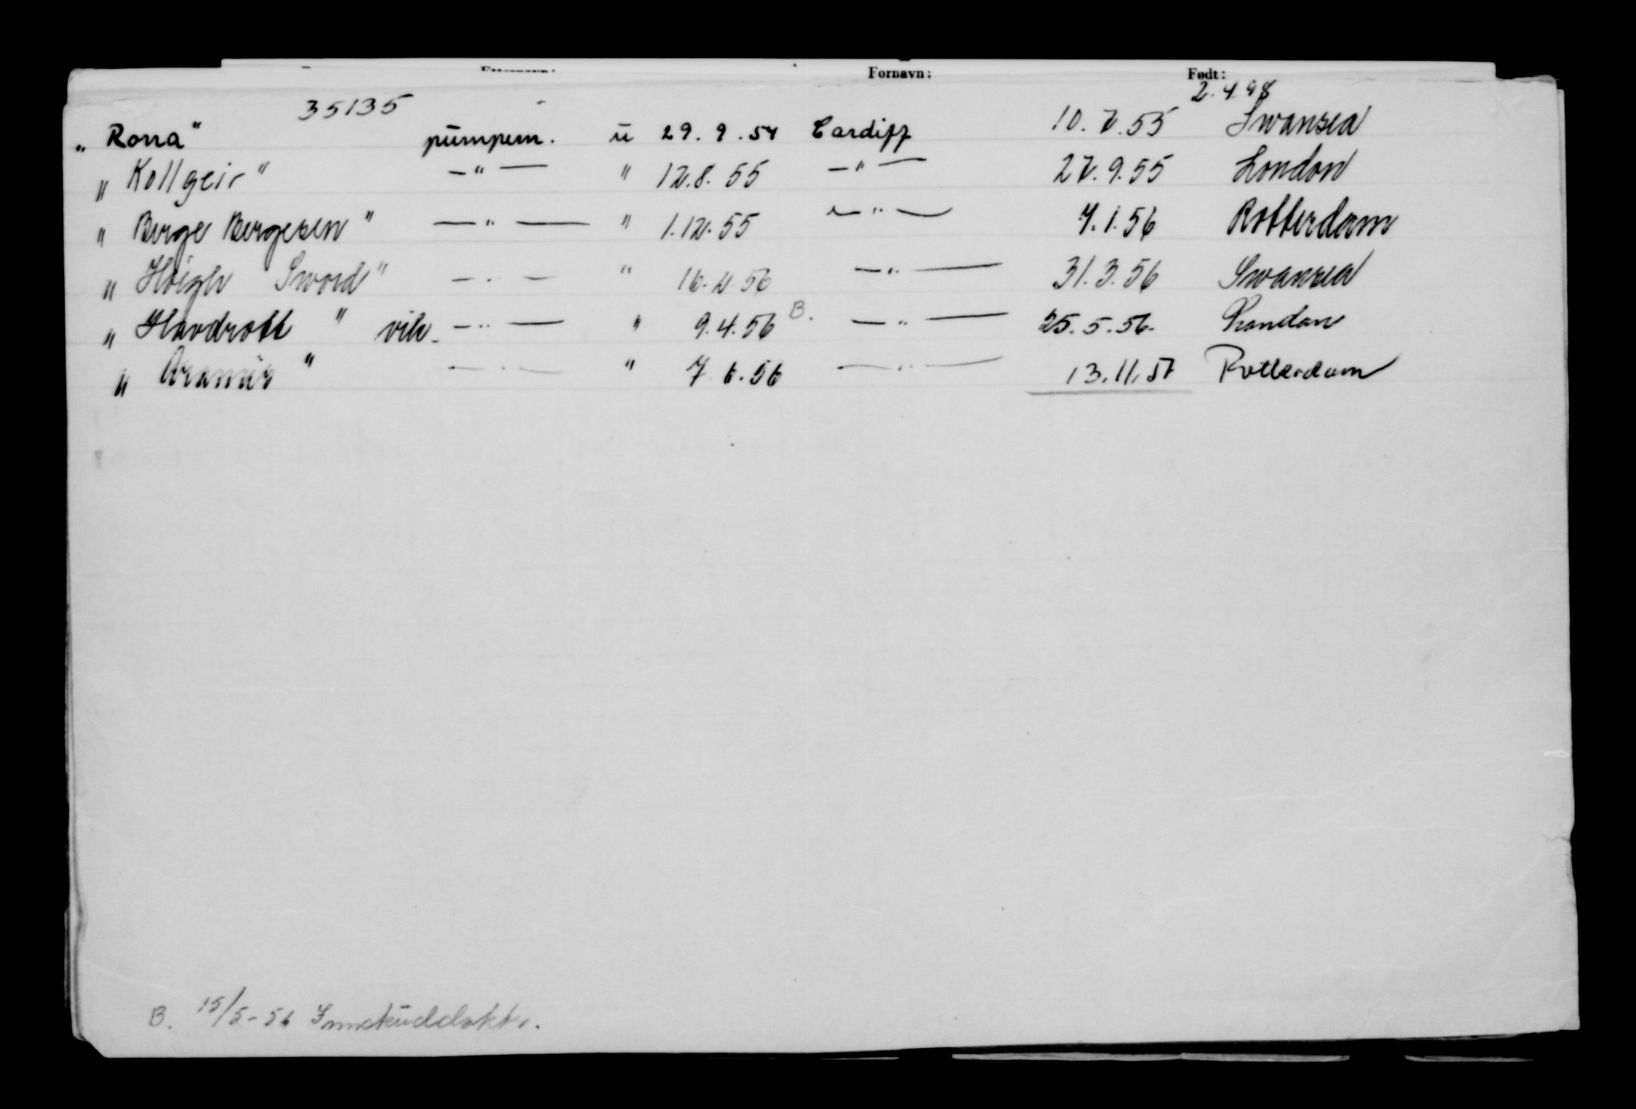 Fornavn: Født:
35135 2.4.98
„ Rona " pumpem. u 29.9.54 Cardiff 10.2.55 Swansea
„ Kollgeir " — " — " 12.8.55 — " — 22.9.55 London
„ Berge Bergesen " — " — " 1.12.55 — " — 7.1.56 Rotterdam
„ Høegh Sword " — " — " 16.2.56 — " — 31.3.56 Swansea
„ Havdrott " vik. — " — " 9.4.56 B. — " — 25.5.56. London
„ Aramis " — " — " 7.6.56 — " — 13.11.57 Rotterdam
B. 15/5-56